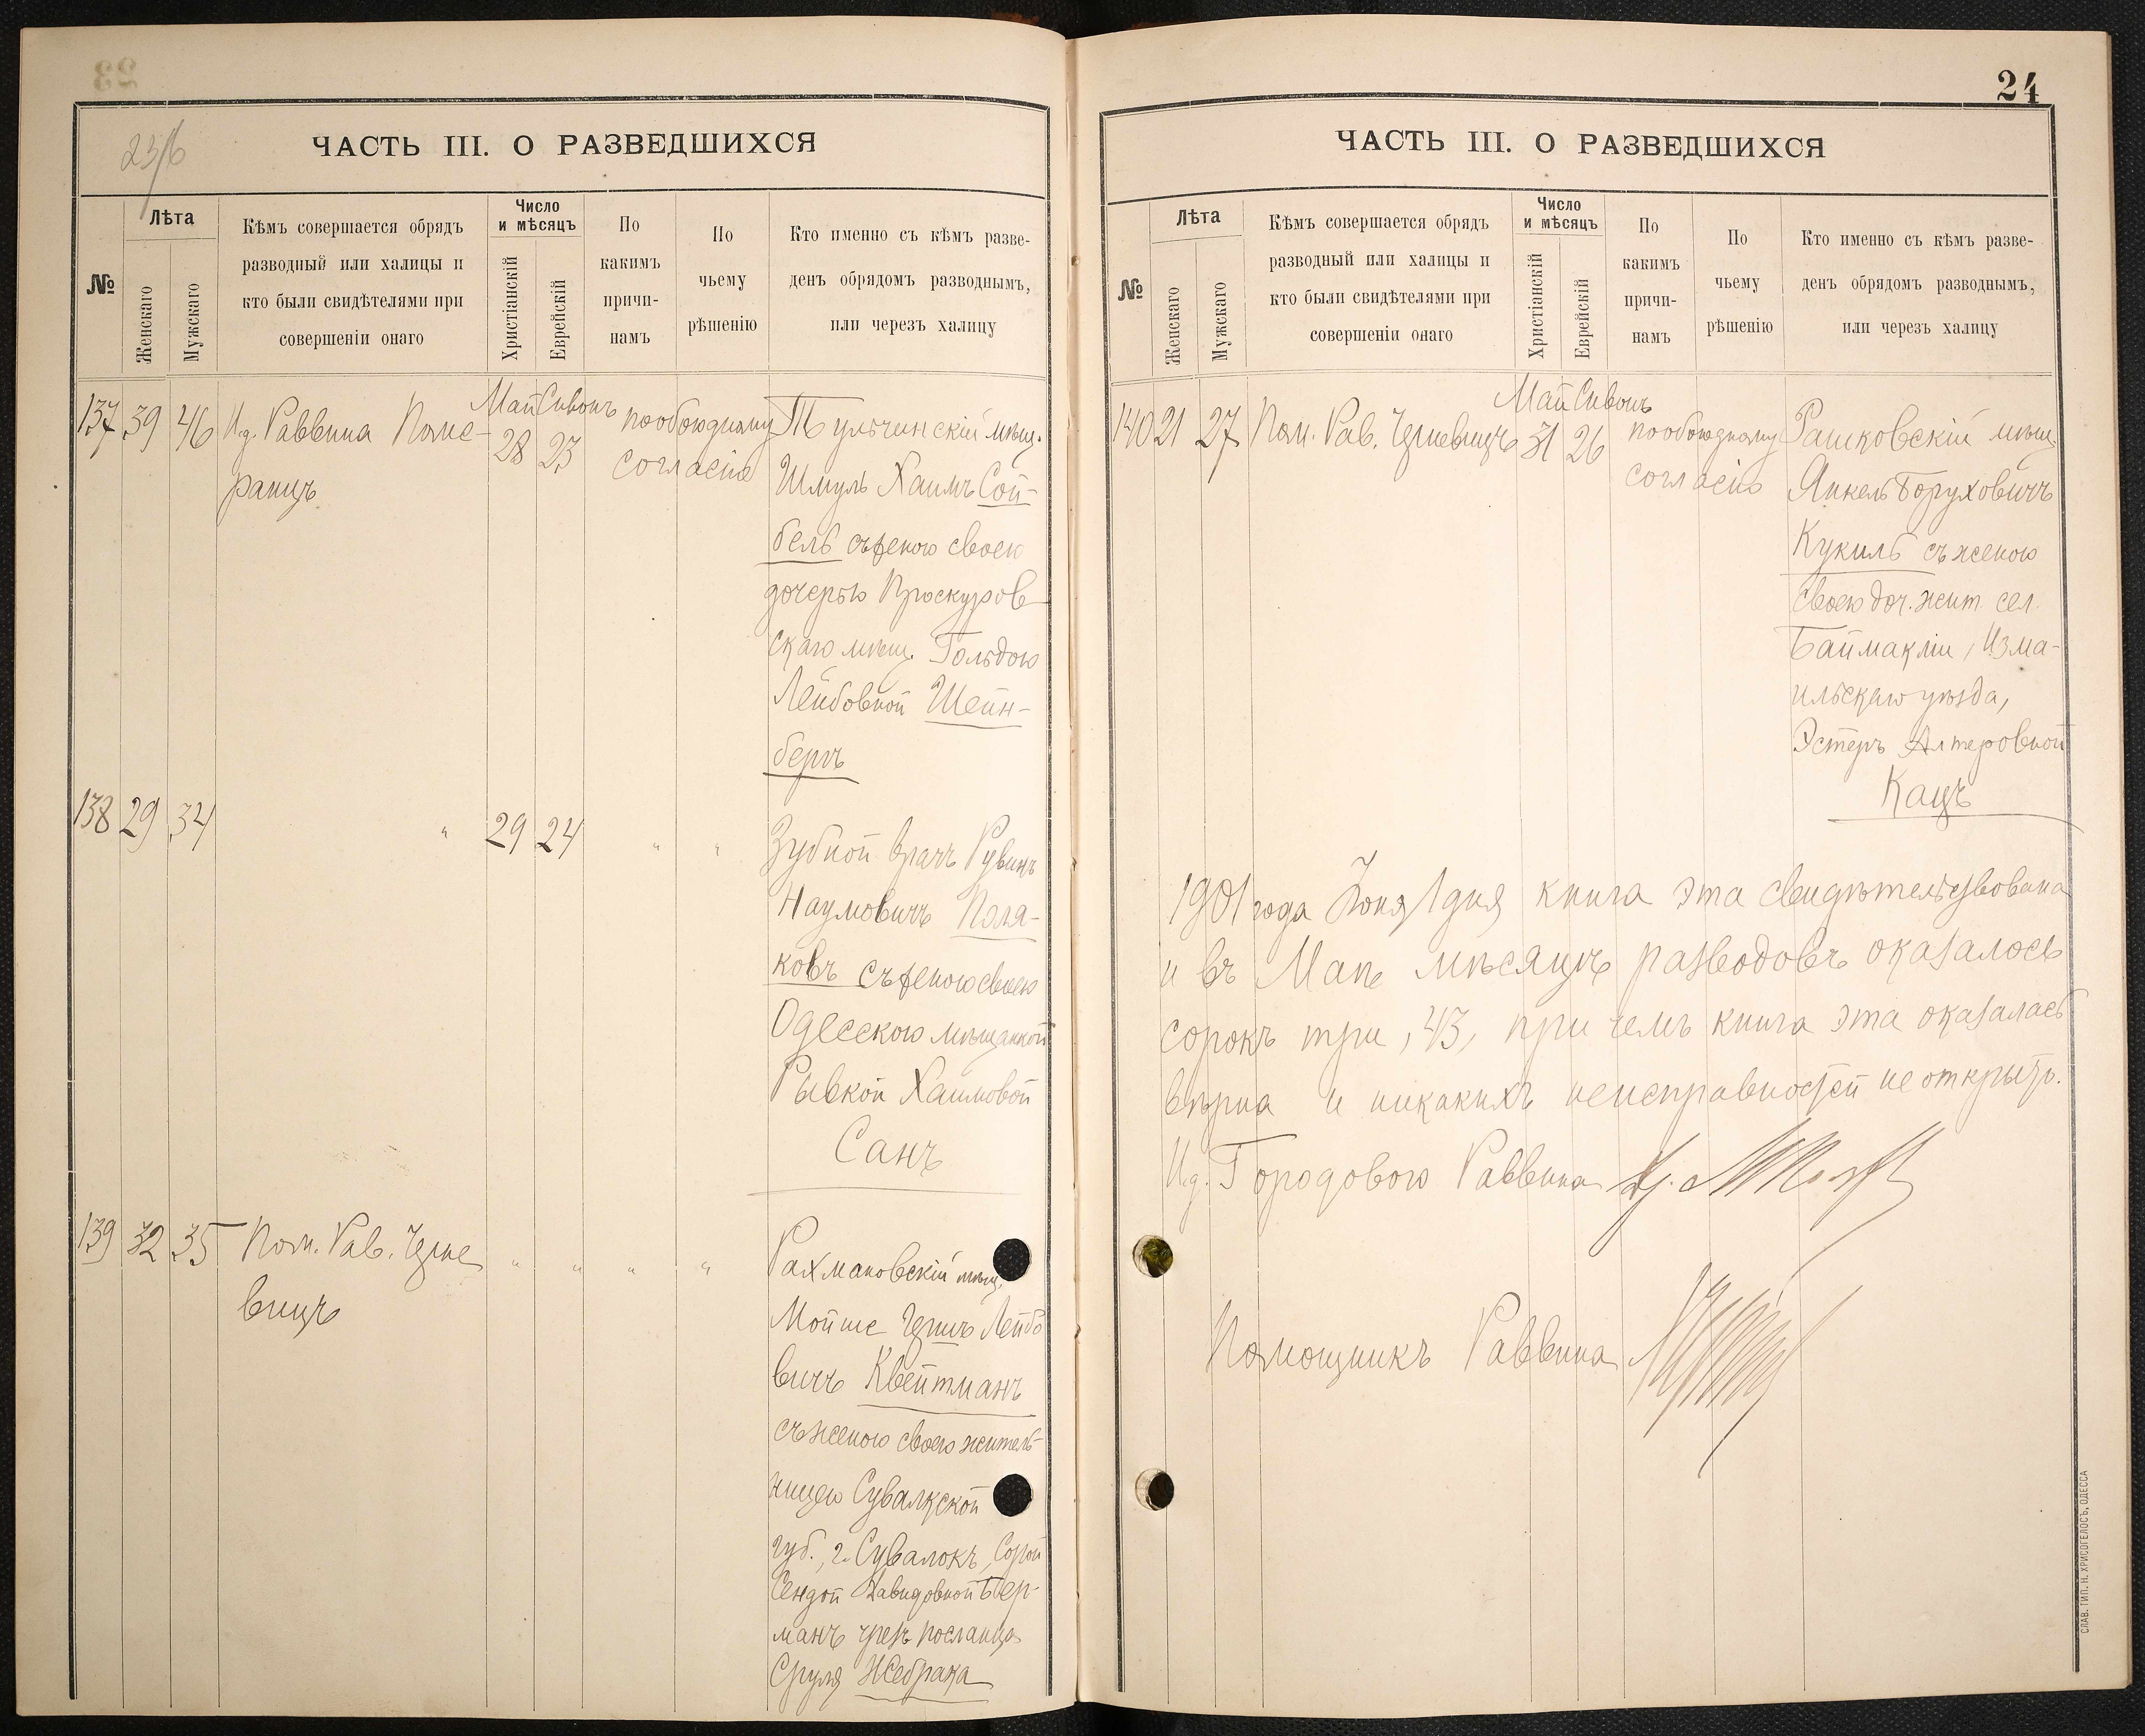 23/б
ЧАСТЬ III. О РАЗВЕДШИХСЯ
№
Лѣта
Женскаго
Мужскаго
Кѣмъ совершается обрядъ
разводный или халицы и
кто были свидѣтелями при
совершеніи онаго
Число
и мѣсяцъ
Христіанскій
Еврейскій
По
какимъ
причи-
намъ
По
чьему
рѣшенію
Кто именно съ кѣмъ разве-
денъ обрядомъ разводнымъ,
или черезъ халицу
137 39 46 И.д. Раввина Поме-
ранцъ
Май Сивонъ
28 23
по обоюдному
согласію
Тульчинскій мѣщ.
Шмуль Хаимъ Сой-
бель съ женою своею
дочерью Проскуров-
скаго мѣщ. Гольдою
Лейбовной Шейн-
бергъ
138 29 34 " 29 24 " "
Зубной врачъ Рувинъ
Наумовичъ Поля-
ковъ съ женою своею
Одесскою мѣщанкой
Рывкой Хаимовой
Санъ
139 32 35 Пом. Рав. Черне
вицъ
" " " "
Рахмановскій мѣщ.
Мойше Гершъ Лейбо
вичъ Квейтманъ
съ женою своею житель-
ницею Сувалкской
губ., г. Сувалокъ, Сорой
Гендой Давидовной Бер-
манъ чрезъ посланца
Сруля Жебрака
24
ЧАСТЬ III. О РАЗВЕДШИХСЯ
№
Лѣта
Женскаго
Мужскаго
Кѣмъ совершается обрядъ
разводный или халицы и
кто были свидѣтелями при
совершеніи онаго
Число
и мѣсяцъ
Христіанскій
Еврейскій
По
какимъ
причи-
намъ
По
чьему
рѣшенію
Кто именно съ кѣмъ разве-
денъ обрядомъ разводнымъ,
или черезъ халицу
140 21 27 Пом. Рав. Черневицъ
Май Сивонъ
31 26
по обоюдному
согласію
Рашковскій мѣщ.
Янкель Боруховичъ
Кукиль съ женою
своею доч. жит. сел.
Баймакліи, Изма-
ильскаго уѣзда,
Эстеръ Алтеровной
Кацъ
1901 года Іюня 1 дня книга эта свидѣтельствована
и въ Маѣ мѣсяцѣ разводовъ оказалось
сорокъ три, 43, при чемъ книга эта оказалась
вѣрна и никакихъ неисправностей не открыто.
И.д. Городового Раввина
Помощникъ Раввина
СЛАВ. ТИП. Н. ХРИСОГЕЛОСЪ, ОДЕССА